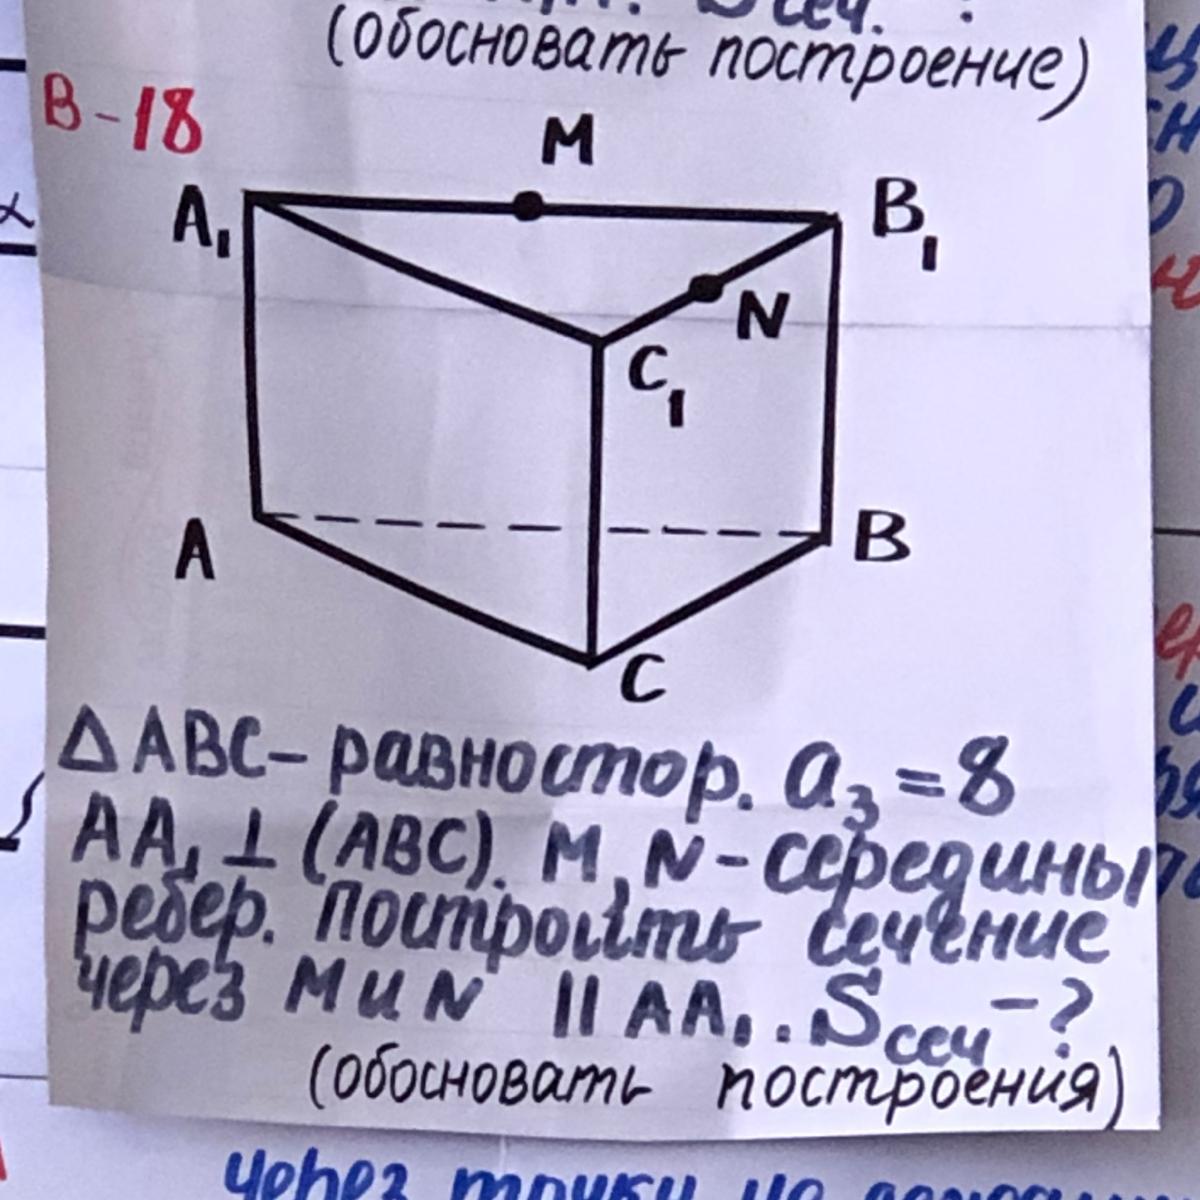 Sсеч. ?
(обосновать построение)
В-18
M
A₁
B₁
N
C₁
A
B
C
△ABC- равностор. a₃=8
AA₁⊥(ABC). M,N-середины
ребер. Построить сечение
через M и N || AA₁. Sсеч-?
(обосновать построения)
через точки